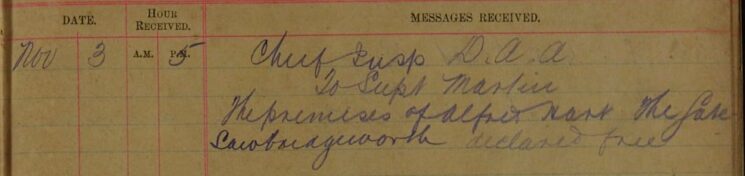 DATE. HOUR RECEIVED. MESSAGES RECEIVED.
Nov 3 A.M. P.M. 5 Chief Insp D. A. A.
To Supt Martin
The premises of Alfred The Gate
Sawbridgeworth declared free